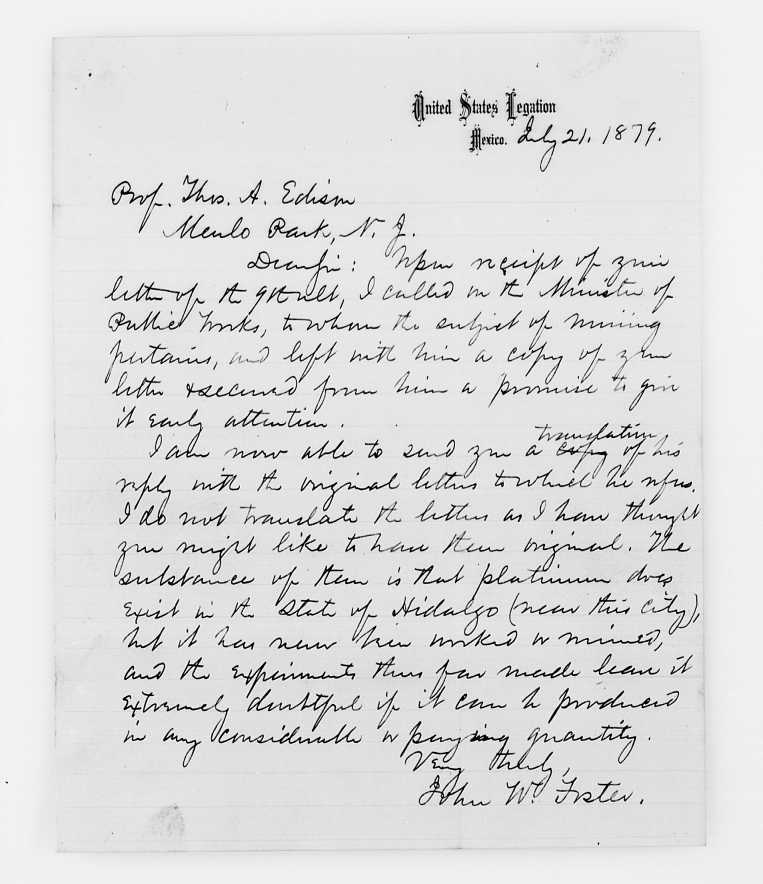 United States Legation
Mexico. July 21, 1879.
Prof. Thos. A. Edison
Menlo Park, N. J.
Dear Sir: Upon receipt of your
letter of the 9th ult, I called on the Minister of
Public Works, to whom the subject of mining
pertains, and left with him a copy of your
letter & secured from him a promise to give
it early attention.
translation
I am now able to send you a copy of his
reply with the original letters to which he refers.
I do not translate the letters as I have thought
you might like to have them original. The
substance of them is that platinum does
exist in the State of Hidalgo (near this city),
but it has never been worked or mined,
and the experiments thus far made leave it
extremely doubtful if it can be produced
in any considerable or paying quantity.
Very truly,
John W. Foster.